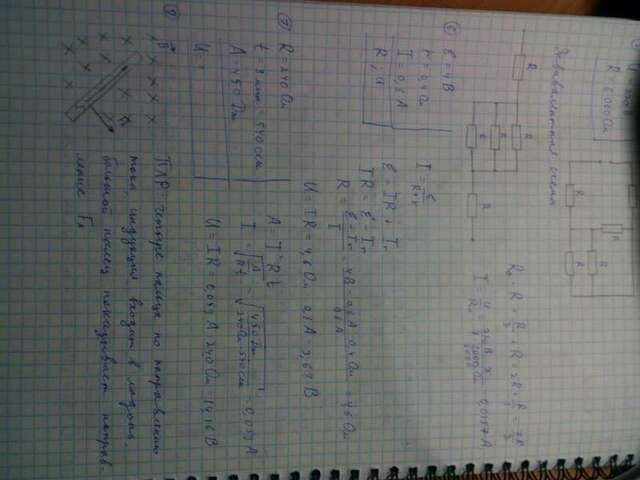 R = 6000 Ом
Эквивалентная схема
R
R
R
R
R
R₀ = R + R/3 + R = 2R + R/3 = 7R/3
I = U/R₀
0,0157 А
⑥ ℰ = 4В
r = 0,4 Ом
I = 0,8 А
R, U
I = ℰ/(R+r)
ℰ = IR + Ir
IR = ℰ - Ir
R = (ℰ - Ir)/I = (4В - 0,8А · 0,4 Ом)/0,8А = 4,6 Ом
U = IR = 4,6 Ом · 0,8А = 3,67 В
⑦ R = 240 Ом
t = 9 мин = 540 сек
A = 450 Дж
U - ?
A = I²Rt
I = √(A/Rt) = √(450 Дж/240 Ом · 540 сек) = 0,059 А
U = IR = 0,059 А · 240 Ом = 14,16 В
⑧
B
ПЛР четыре пальца по направлению
тока индукция входит в ладонь.
большой палец показывает направ
ление Fл